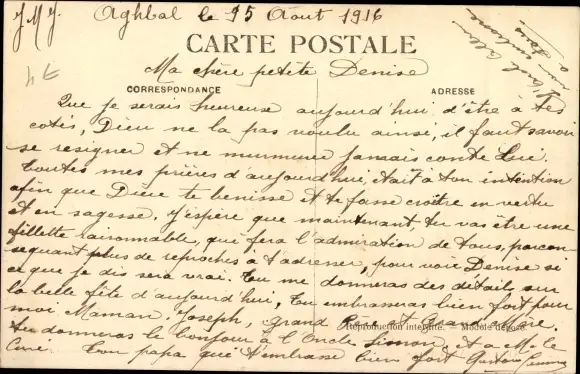 J.M.J. Aghbal le 15 Août 1916
CARTE POSTALE
Ma chère petite Denise
CORRESPONDANCE
ADRESSE
Que je serais heureuse aujourd'hui d'être à tes
cotés, Dieu ne la pas voulu ainsi, il faut savoir
se resigner et ne murmurer jamais contre Lui.
Toutes mes prières d'aujourd'hui, était à ton intention
afin que Dieu te benisse et te fasse croître en vertu
et en sagesse. J'espère que maintenant, tu vas être une
fillette raisonnable, qui fera l'admiration de tous, par con
sequant plus de reproches a t'adresser, pour voir Denise si
ce que je dis sera vrai. Tu me donneras des détails sur
la belle fête d'aujourd'hui, Tu embrasseras bien fort pour
moi Maman, Joseph, grand Père et Grand mère.
Reproduction interdite. — Modèle déposé.
tu donneras le bonjour à l'Oncle Simon, et a M. le
Curé. Ton papa qui t'embrasse bien fort
4 E